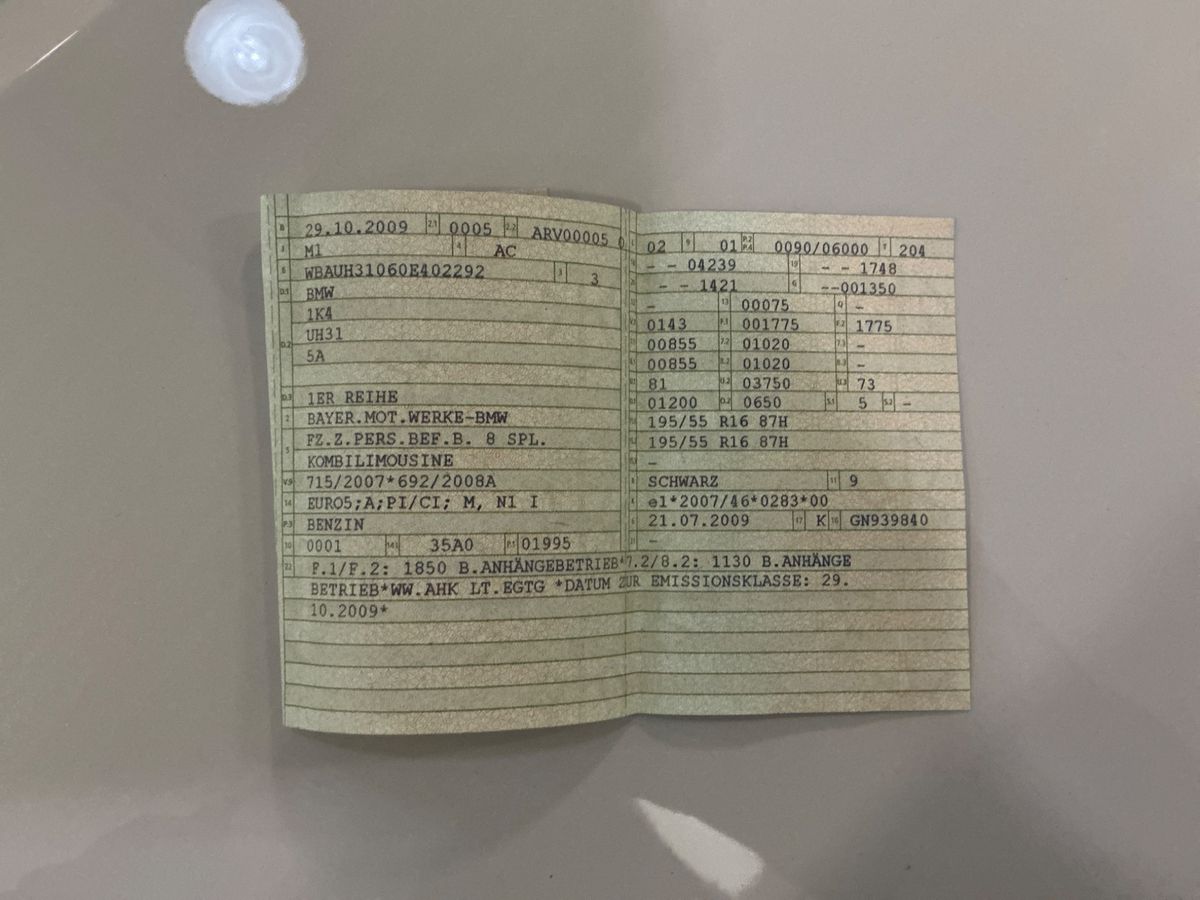 B 29.10.2009 2.1 0005 2.2 ARV00005 0
J M1 4 AC
E WBAUH31060E402292 3 3
D.1 BMW
1K4
UH31
D.2 5A
D.3 1ER REIHE
2 BAYER.MOT.WERKE-BMW
5 FZ.Z.PERS.BEF.B. 8 SPL.
KOMBILIMOUSINE
V.9 715/2007*692/2008A
14 EURO5;A;PI/CI; M, N1 I
P.3 BENZIN
10 0001 14.1 35A0 P.1 01995
L 02 9 01 P.2 P.4 0090/06000 T 204
18 - - 04239 19 - - 1748
20 - - 1421 G --001350
12 - 13 00075 Q -
V.7 0143 F.1 001775 F.2 1775
7.1 00855 7.2 01020 7.3 -
8.1 00855 8.2 01020 8.3 -
U.1 81 U.2 03750 U.3 73
O.1 01200 O.2 0650 S.1 5 S.2 -
15.1 195/55 R16 87H
15.2 195/55 R16 87H
15.3 -
R SCHWARZ 11 9
K e1*2007/46*0283*00
6 21.07.2009 17 K 16 GN939840
21 -
22 F.1/F.2: 1850 B.ANHÄNGEBETRIEB*7.2/8.2: 1130 B.ANHÄNGE
BETRIEB*WW.AHK LT.EGTG *DATUM ZUR EMISSIONSKLASSE: 29.
10.2009*